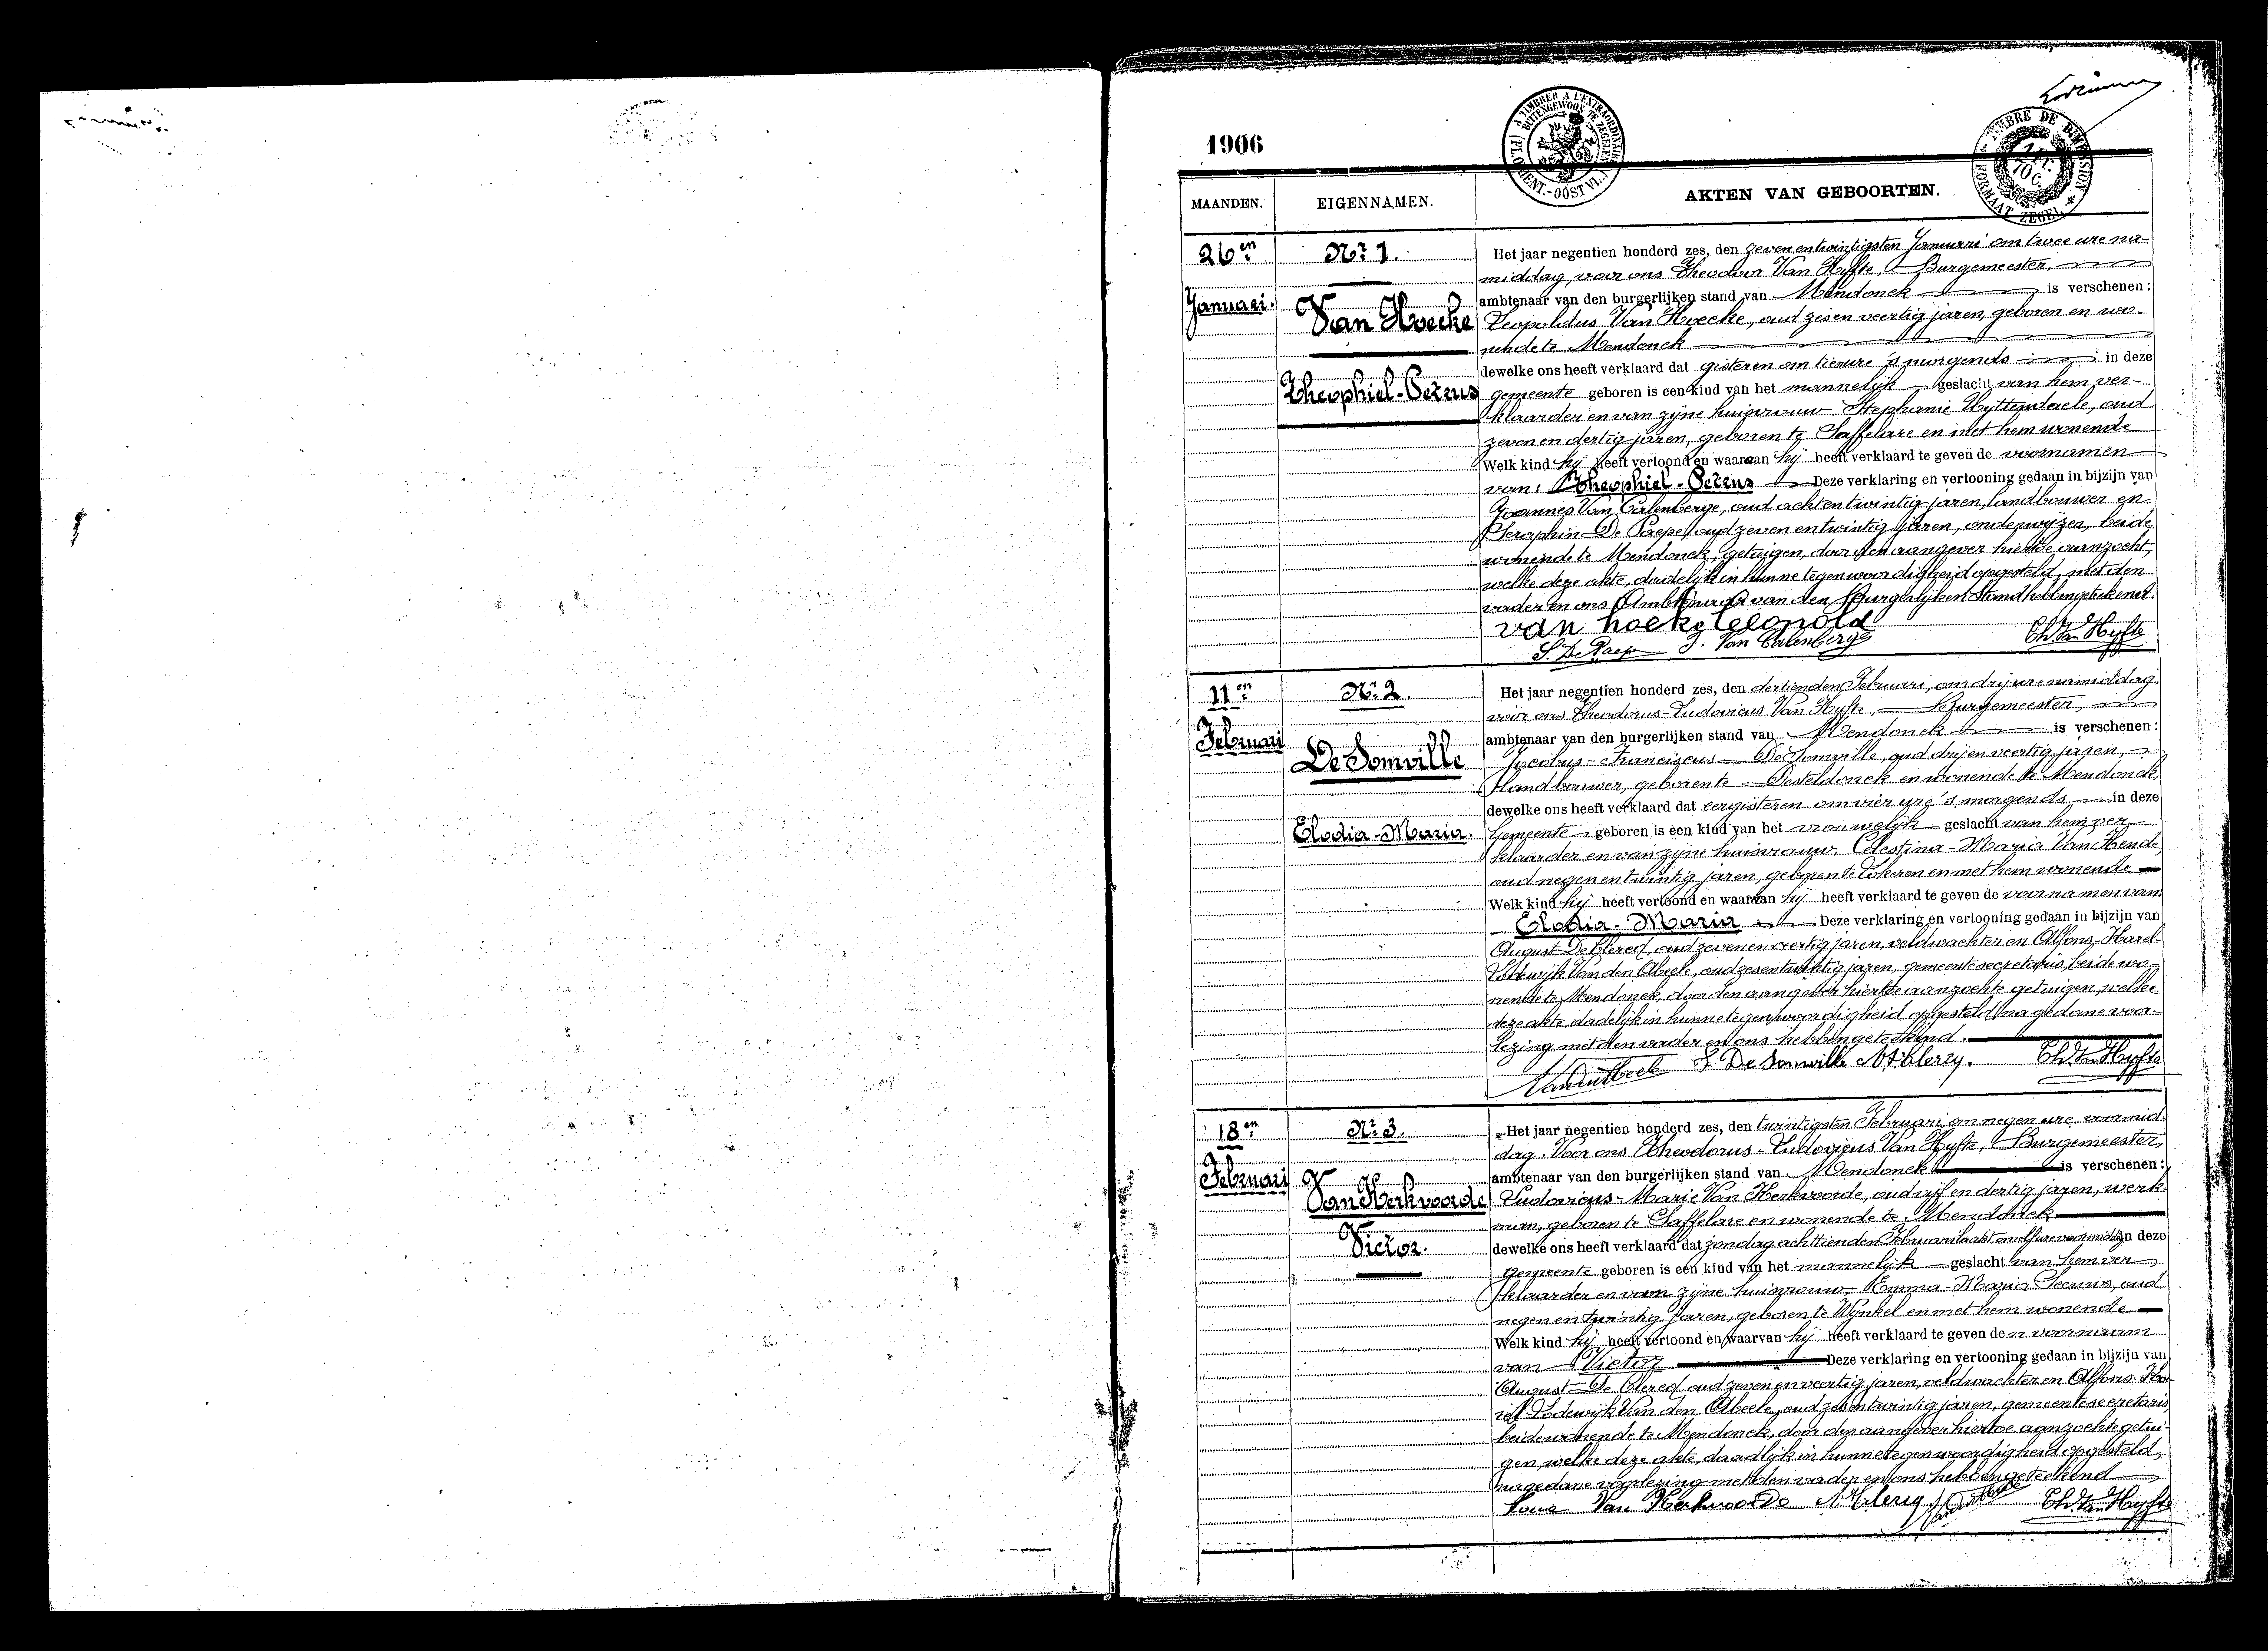 1906
A TIMBRER A L'EXTRAORDINAIRE
BUITENGEWOON TE ZEGELEN
GENT.-OOST VL.
TIMBRE DE DIMENSION
FORMAAT ZEGEL
MAANDEN.
EIGENNAMEN.
AKTEN VAN GEBOORTEN.
26en
Januari.
Nr 1.
Van Hoecke
Theophiel-Petrus
Het jaar negentien honderd zes, den zeven en twintigsten Januari om twee ure na-
middag, voor ons Theodoor Van Hyfte, Burgemeester,
ambtenaar van den burgerlijken stand van Mendonck is verschenen:
Leopoldus Van Hoecke, oud zes en veertig jaren, geboren en wo-
nende te Mendonck
dewelke ons heeft verklaard dat gisteren om tien ure 's morgends in deze
gemeente geboren is een kind van het mannelijk geslacht van hem ver-
klaarder en van zijne huisvrouw Stephanie Uyttendaele, oud
zeven en dertig jaren, geboren te Saffelare en met hem wonende
Welk kind hij heeft vertoond en waaraan hij heeft verklaard te geven de voornamen
van: Theophiel-Petrus Deze verklaring en vertooning gedaan in bijzijn van
Joannes Van Calenberge, oud acht en twintig jaren, landbouwer en
Seraphin De Paepe, oud zeven en twintig jaren, onderwijzer, beide
wonende te Mendonck, getuigen, door den aangever hiertoe aanzocht,
welke deze akte, dadelijk in hunne tegenwoordigheid opgesteld, met den
vader en ons Ambtenaar van den Burgerlijken Stand hebben geteekend.
van hoeke leopold
S. De Paepe J. Van Calenberge Th. Van Hyfte
11en
Februari
Nr 2.
De Somville
Elodia-Maria.
Het jaar negentien honderd zes, den dertienden Februari, om drij ure namiddag,
voor ons Theodorus-Ludovicus Van Hyfte, Burgemeester,
ambtenaar van den burgerlijken stand van Mendonck is verschenen:
Jacobus-Franciscus De Somville, oud drij en veertig jaren,
Landbouwer, geboren te Desteldonck en wonende te Mendonck,
dewelke ons heeft verklaard dat eergisteren om vier ure 's morgends in deze
Gemeente geboren is een kind van het vrouwelijk geslacht van hem ver-
klaarder en van zijne huisvrouw Celestina-Maria Van Hende,
oud negen en twintig jaren, geboren te Lokeren en met hem wonende
Welk kind hij heeft vertoond en waaraan hij heeft verklaard te geven de voornamen van
Elodia-Maria Deze verklaring en vertooning gedaan in bijzijn van
August De Clercq, oud zeven en veertig jaren, veldwachter en Alfons-Karel-
Lodewijk Van den Abeele, oud zes en twintig jaren, gemeentesecretaris, beide wo-
nende te Mendonck, door den aangever hiertoe aanzochte getuigen, welke
deze akte, dadelijk in hunne tegenwoordigheid opgesteld, na gedane voor-
lezing met den vader en ons hebben geteekend.
Vandenabeele De Somville A De Clercq. Th. Van Hyfte
18en
Februari
Nr 3.
Van Herkvoorde
Victor.
Het jaar negentien honderd zes, den twintigsten Februari om negen ure voormid-
dag. Voor ons Theodorus-Ludovicus Van Hyfte, Burgemeester,
ambtenaar van den burgerlijken stand van Mendonck is verschenen:
Ludovicus-Marie Van Herkvoorde, oud vijf en dertig jaren, werk-
man, geboren te Saffelare en wonende te Mendonck
dewelke ons heeft verklaard dat zondag achttienden Februari laatst om elf ure voormiddag in deze
gemeente geboren is een kind van het mannelijk geslacht van hem ver-
klaarder en van zijne huisvrouw Emma-Maria, oud
negen en twintig jaren, geboren te Wynkel en met hem wonende
Welk kind hij heeft vertoond en waarvan hij heeft verklaard te geven de n voornaam
van Victor Deze verklaring en vertooning gedaan in bijzijn van
August De Clercq, oud zeven en veertig jaren, veldwachter en Alfons-Ka-
rel-Lodewijk Van den Abeele, oud zes en twintig jaren, gemeentesecretaris,
beide wonende te Mendonck, door den aangever hiertoe aanzochte getui-
gen, welke deze akte, daadlijk in hunne tegenwoordigheid opgesteld,
na gedane voorlezing met den vader en ons hebben geteekend
Van Herkvoorde A De Clercq Vandenabeele Th. Van Hyfte